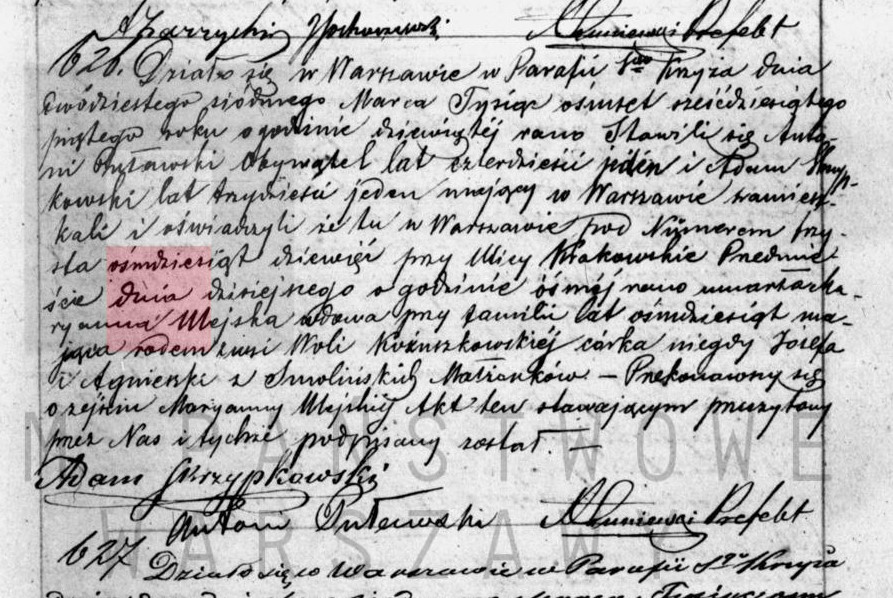 626. Działo się w Warszawie w Parafii Sgo Krzyża dnia
dwódziestego siódmego Marca Tysiąc ośmset sześćdziesiątego
piątego roku o godzinie dziewiątéj rano Stawili się Anto-
ni Obywatel lat czterdzieści jedén i Adam Skrzyp-
kowski lat trzydzieści jeden mający w Warszawie zamiesz-
kali i oświadczyli że tu w Warszawie pod Numerem trzy-
sta ośmdziesiąt dziewięć przy Ulicy Krakowskie Przedmie-
ście dnia dzisiejszego o godzinie ósméj rano umarła Ma-
ryanna Ulejska wdowa przy familii lat ośmdziesiąt ma-
jąca rodem z wsi Woli Kożuszkowskiéj córka niegdy Józefa
i Agnieszki z Smolińskich Małżonków – Przekonawszy się
o zejściu Maryanny Ulejskiéj Akt ten stawającym przeczytany
przez Nas i tychże podpisany został. =
Adam Skrzypkowski
Antoni Prefekt
627 Działo się w Warszawie w Parafii Sgo Krzyża
PAŃSTWOWE
WARSZAW